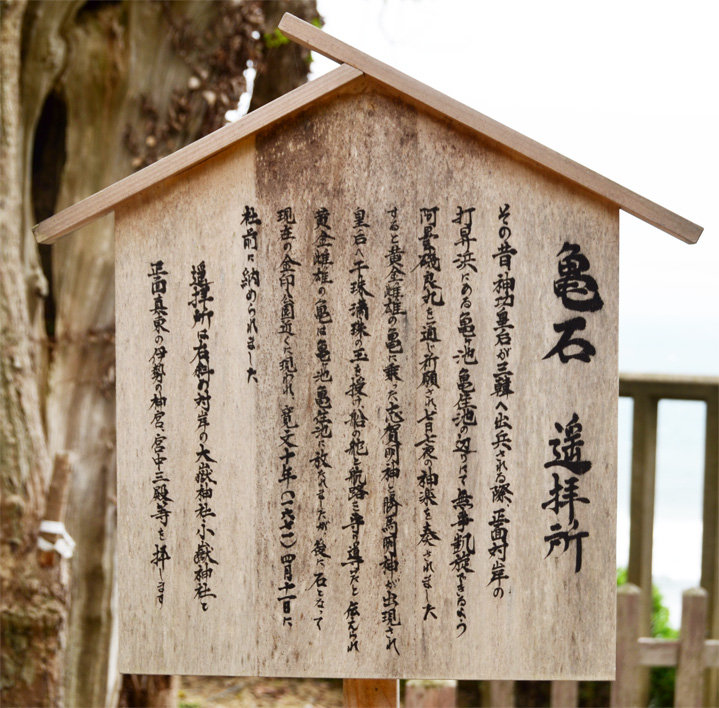 亀石 遥拝所
その昔 神功皇后が三韓へ出兵される際、正面対岸の
打昇浜にある亀ヶ池 亀生池の辺にて無事凱旋できるよう
阿曇磯良丸を通じ祈願され七日七夜の神楽を奏されました
すると黄金雌雄の亀に乗った志賀明神と勝馬明神が出現され
皇后へ干珠満珠の玉を授け船の舵と航路を守り導いたと伝えられ
黄金雌雄の亀は亀ヶ池 亀生池に放たれましたが 後に石となって
現在の金印公園近くに現われ 寛文十年(一六七一)四月十一日に
社前に納められました
遥拝所は右斜め対岸の大嶽神社・小嶽神社と
正面真東の伊勢の神宮、宮中三殿等を拝します